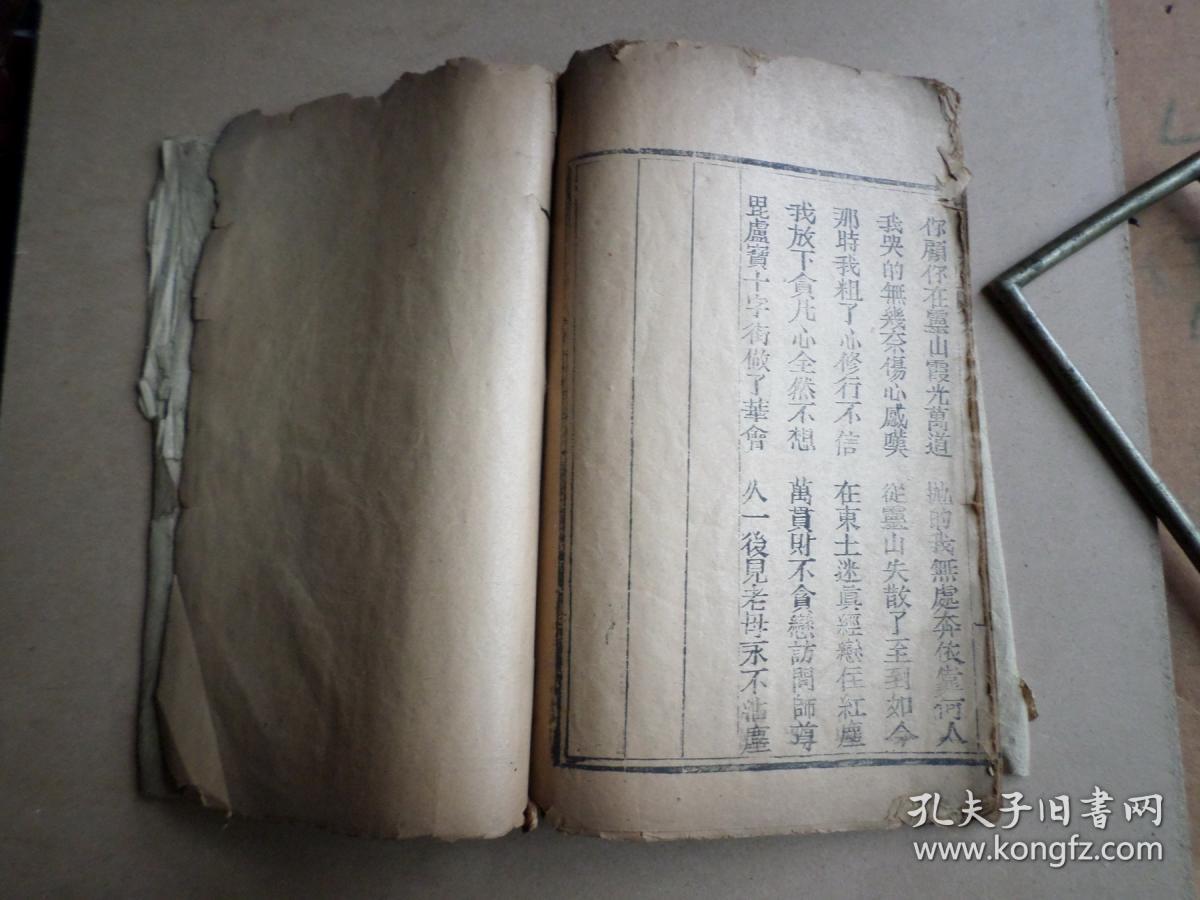 你顧你在靈山霞光萬道　拋的我無處奔依靠何人
我哭的無幾奈傷心感嘆　從靈山失散了至到如今
那時我粗了心修行不信　在東土迷真經戀在紅塵
我放下貪凡心全然不想　萬貫財不貪戀訪問師尊
毘盧寶十字街做了華會　久一後見老母永不沾塵
孔夫子旧书网
www.kongfz.com